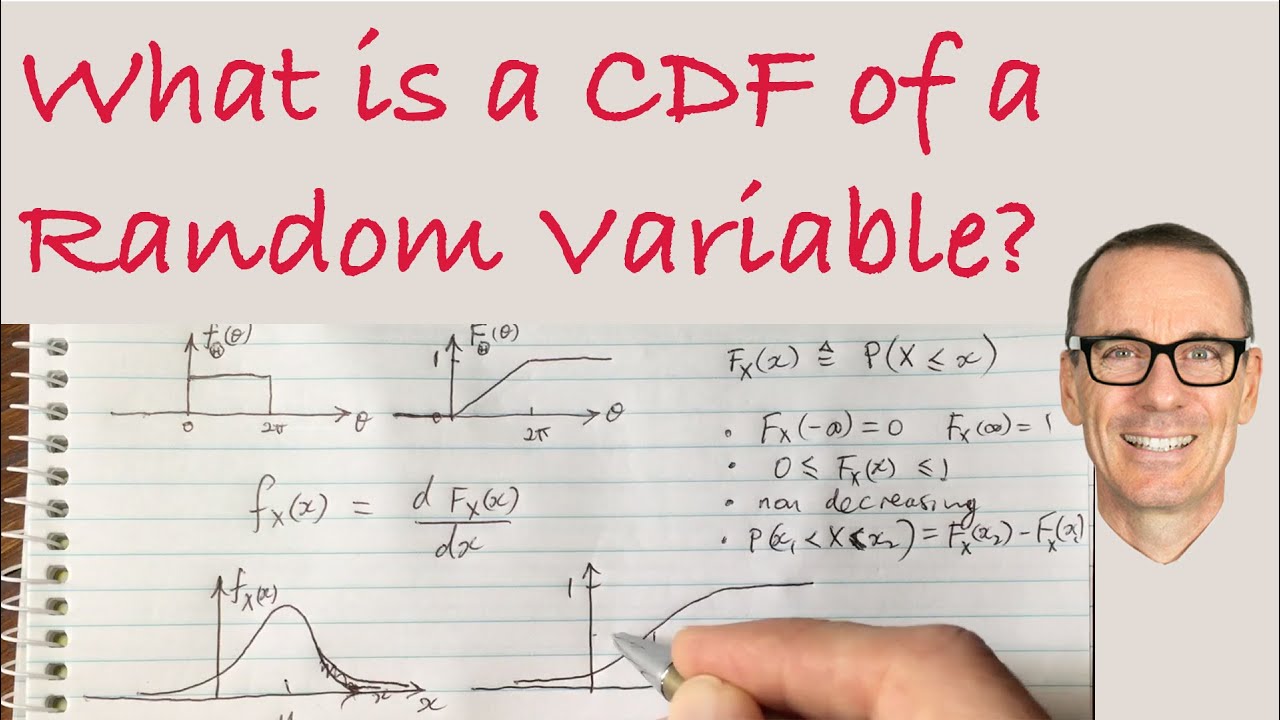 What is a CDF of a
Random Variable?
f_Θ(θ)
0 2π θ
F_Θ(θ)
1
0 2π θ
F_X(x) ≜ P(X ≤ x)
• F_X(-∞) = 0 F_X(∞) = 1
• 0 ≤ F_X(x) ≤ 1
• non decreasing
• P(x₁ < X ≤ x₂) = F_X(x₂) - F_X(x₁)
f_X(x) = d F_X(x) / dx
f_X(x)
x x
1